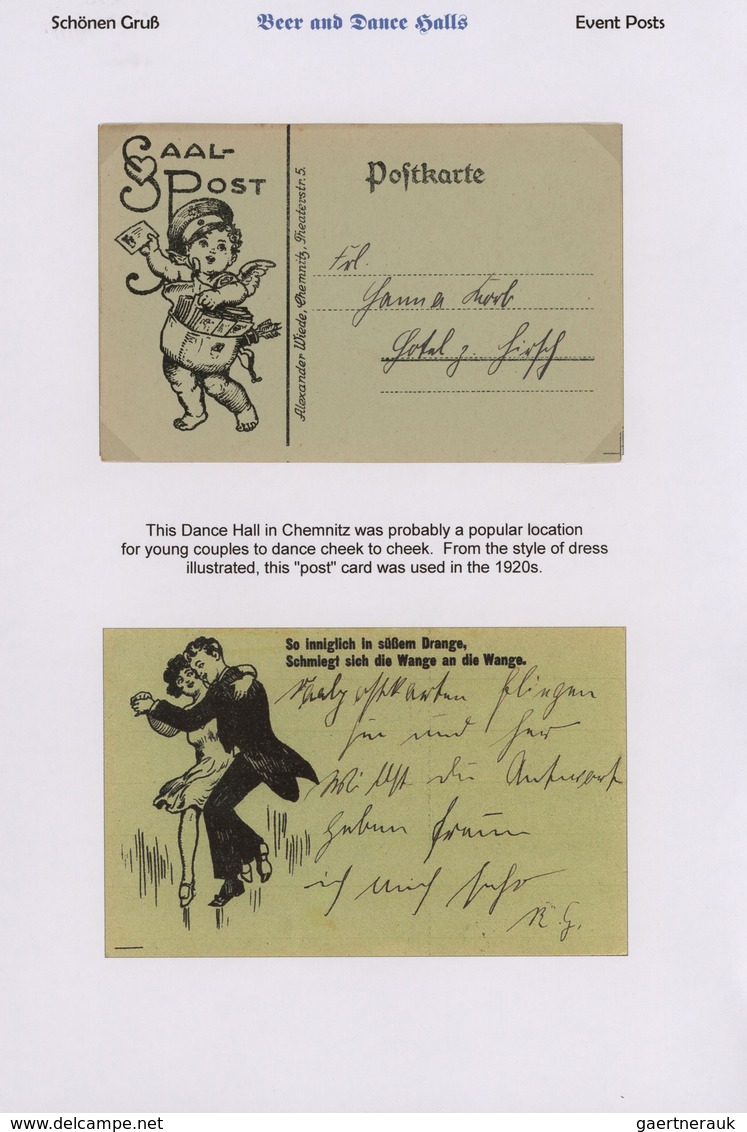 Schönen Gruß
Beer and Dance Halls
Event Posts
SAAL-
POST
Alexander Wiede, Chemnitz, Theaterstr. 5.
Postkarte
Frl.
Hanna Korb
Hotel z. Hirsch
This Dance Hall in Chemnitz was probably a popular location
for young couples to dance cheek to cheek. From the style of dress
illustrated, this "post" card was used in the 1920s.
So inniglich in süßem Drange,
Schmiegt sich die Wange an die Wange.
Saalpostkarten fliegen
hin und her
Willst du Antwort
geben freun
ich mich sehr
K. G.
www.delcampe.net
gaertnerauk